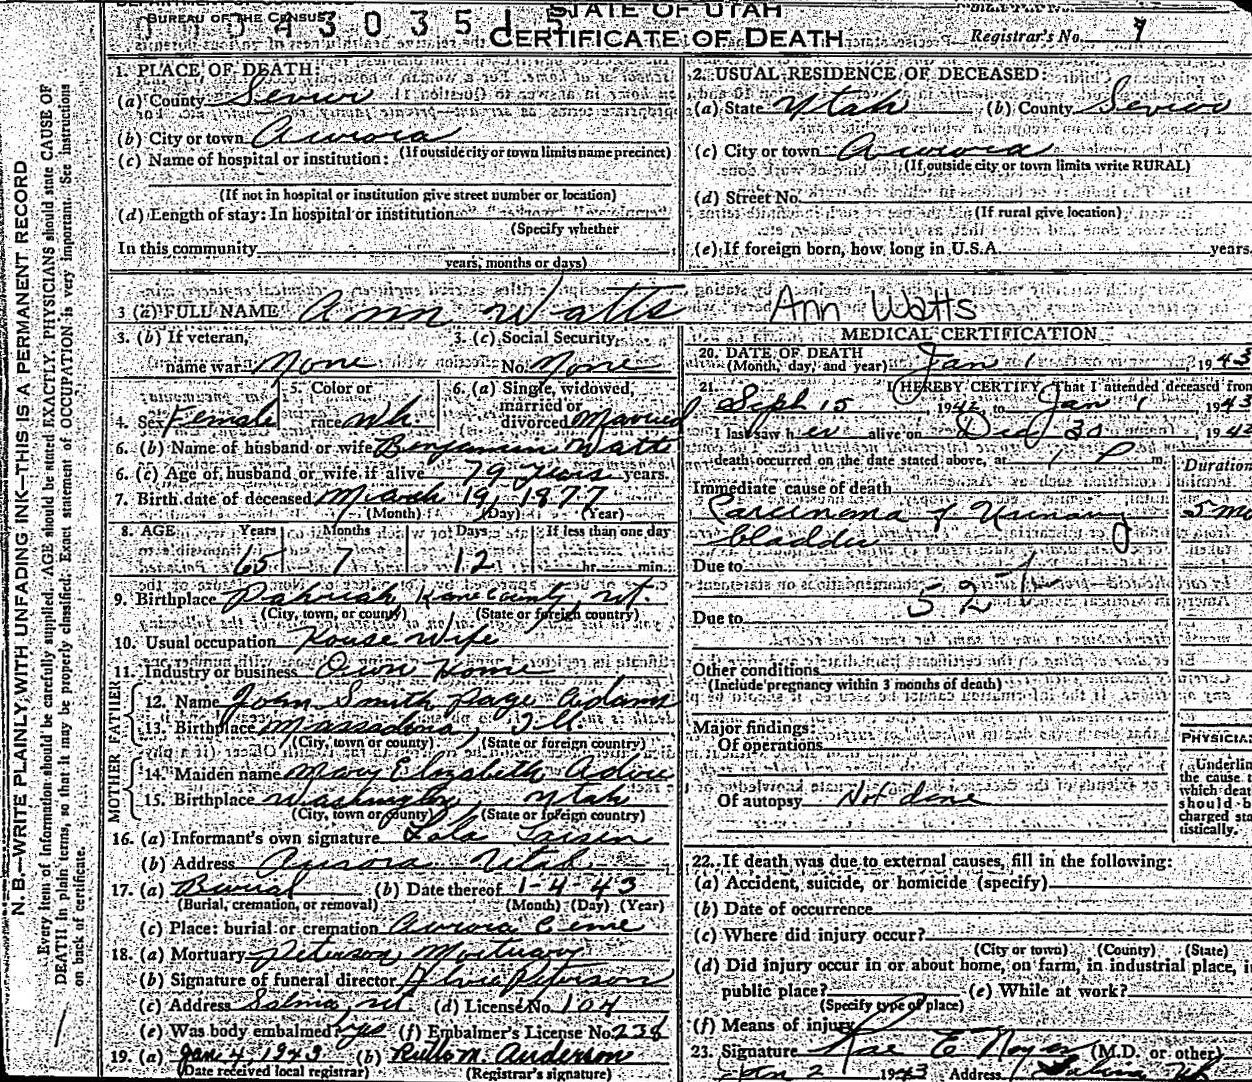 BUREAU OF THE CENSUS
STATE OF UTAH
CERTIFICATE OF DEATH
Registrar's No. 7
N. B.—WRITE PLAINLY, WITH UNFADING INK—THIS IS A PERMANENT RECORD
Every item of information should be carefully supplied. AGE should be stated EXACTLY. PHYSICIANS should state CAUSE OF
DEATH in plain terms, so that it may be properly classified. Exact statement of OCCUPATION is very important. See instructions
on back of certificate.
1. PLACE OF DEATH:
(a) County Sevier
(b) City or town Aurora
(If outside city or town limits name precinct)
(c) Name of hospital or institution:
(If not in hospital or institution give street number or location)
(d) Length of stay: In hospital or institution
(Specify whether
In this community
years, months or days)
2. USUAL RESIDENCE OF DECEASED:
(a) State Utah (b) County Sevier
(c) City or town Aurora
(If outside city or town limits write RURAL)
(d) Street No.
(If rural give location)
(e) If foreign born, how long in U.S.A. years.
3 (a) FULL NAME Ann Watts Ann Watts
3. (b) If veteran, name war None
3. (c) Social Security No. None
4. Sex Female
5. Color or race Wh.
6. (a) Single, widowed, married or divorced Married
6. (b) Name of husband or wife Benjamin Watts
6. (c) Age of husband or wife if alive 79 years years.
7. Birth date of deceased March 19, 1877
(Month) (Day) (Year)
8. AGE Years Months Days If less than one day
65 7 12 hr. min.
9. Birthplace Pahriah Kane County Ut.
(City, town, or county) (State or foreign country)
10. Usual occupation House Wife
11. Industry or business Own Home
FATHER
12. Name John Smith Page Adams
13. Birthplace , Ill
(City, town or county) (State or foreign country)
MOTHER
14. Maiden name Mary Elizabeth
15. Birthplace Washington, Utah
(City, town or county) (State or foreign country)
16. (a) Informant's own signature Lola Larsen
(b) Address Aurora Utah
17. (a) Burial (b) Date thereof 1-4-43
(Burial, cremation, or removal) (Month) (Day) (Year)
(c) Place: burial or cremation Aurora Ceme
18. (a) Mortuary Peterson Mortuary
(b) Signature of funeral director Peterson
(c) Address Salina, Ut. (d) License No. 104
(e) Was body embalmed? yes (f) Embalmer's License No. 238
19. (a) Jan 4, 1943 (b) M. Anderson
(Date received local registrar) (Registrar's signature)
MEDICAL CERTIFICATION
20. DATE OF DEATH
(Month, day, and year) Jan 1, 1943
21. I HEREBY CERTIFY, That I attended deceased from
Sept 15, 1942 to Jan 1 1943
I last saw her alive on Dec 30, 1942
death occurred on the date stated above, at 1 P m.
Duration
Immediate cause of death
Carcinoma of Urinary 5 mo
bladder
Due to
52
Due to
Other conditions
(Include pregnancy within 3 months of death)
Major findings:
Of operations
Of autopsy Not done
PHYSICIAN
Underline
the cause
which death
should be
charged sta
tistically.
22. If death was due to external causes, fill in the following:
(a) Accident, suicide, or homicide (specify)
(b) Date of occurrence
(c) Where did injury occur?
(City or town) (County) (State)
(d) Did injury occur in or about home, on farm, in industrial place, i
public place? (e) While at work?
(Specify type of place)
(f) Means of injury
23. Signature Rae E Noyes (M.D. or other)
Jan 2 1943 Address Salina Ut